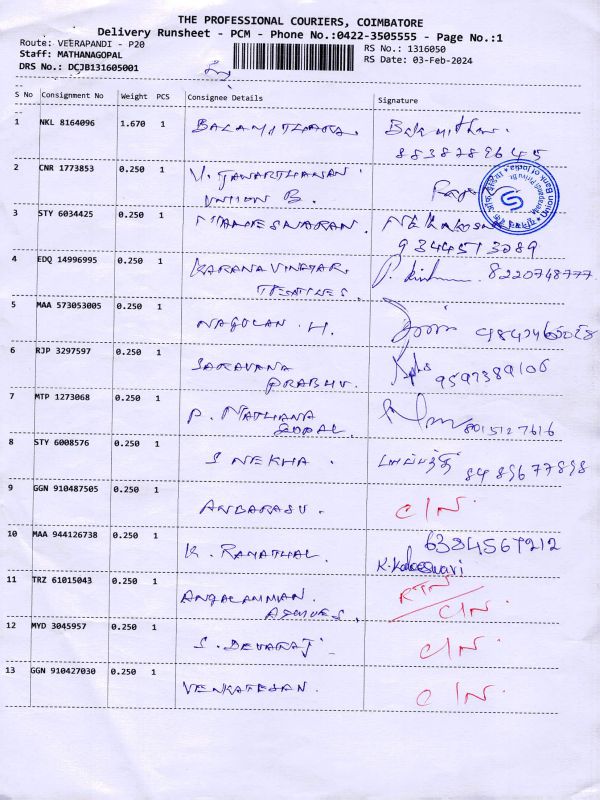 THE PROFESSIONAL COURIERS, COIMBATORE
Delivery Runsheet - PCM - Phone No.:0422-3505555 - Page No.:1
Route: VEERAPANDI - P20
RS No.: 1316050
Staff: MATHANAGOPAL
RS Date: 03-Feb-2024
DRS No.: DCJB131605001
S No Consignment No Weight PCS Consignee Details Signature
1 NKL 8164096 1.670 1 BALAMITHARA. Balamithar.
2 CNR 1773853 0.250 1 V. JANARTHANAN.
UNION B.
3 STY 6034425 0.250 1 MAHESWARAN.
4 EDQ 14996995 0.250 1 KARANAVINAYAR 8220748777.
TEXTILES.
5 MAA 573053005 0.250 1 NAGULAN. H.
6 RJP 3297597 0.250 1 SARAVANA
PRABHU. 9597389106
7 MTP 1273068 0.250 1 P. MATHANA
GOPAL. 8015127616
8 STY 6008576 0.250 1 SNEKHA. 8489677898
9 GGN 910487505 0.250 1 ANBARASU. C/N.
10 MAA 944126738 0.250 1 K. RAMATHAL. 6384567212
K. Kaleeswari
11 TRZ 61015043 0.250 1 ANGALAMMAN RTN
C/N.
12 MYD 3045957 0.250 1 S. DEVARAJ C/N.
13 GGN 910427030 0.250 1 VENKATESAN. C/N.